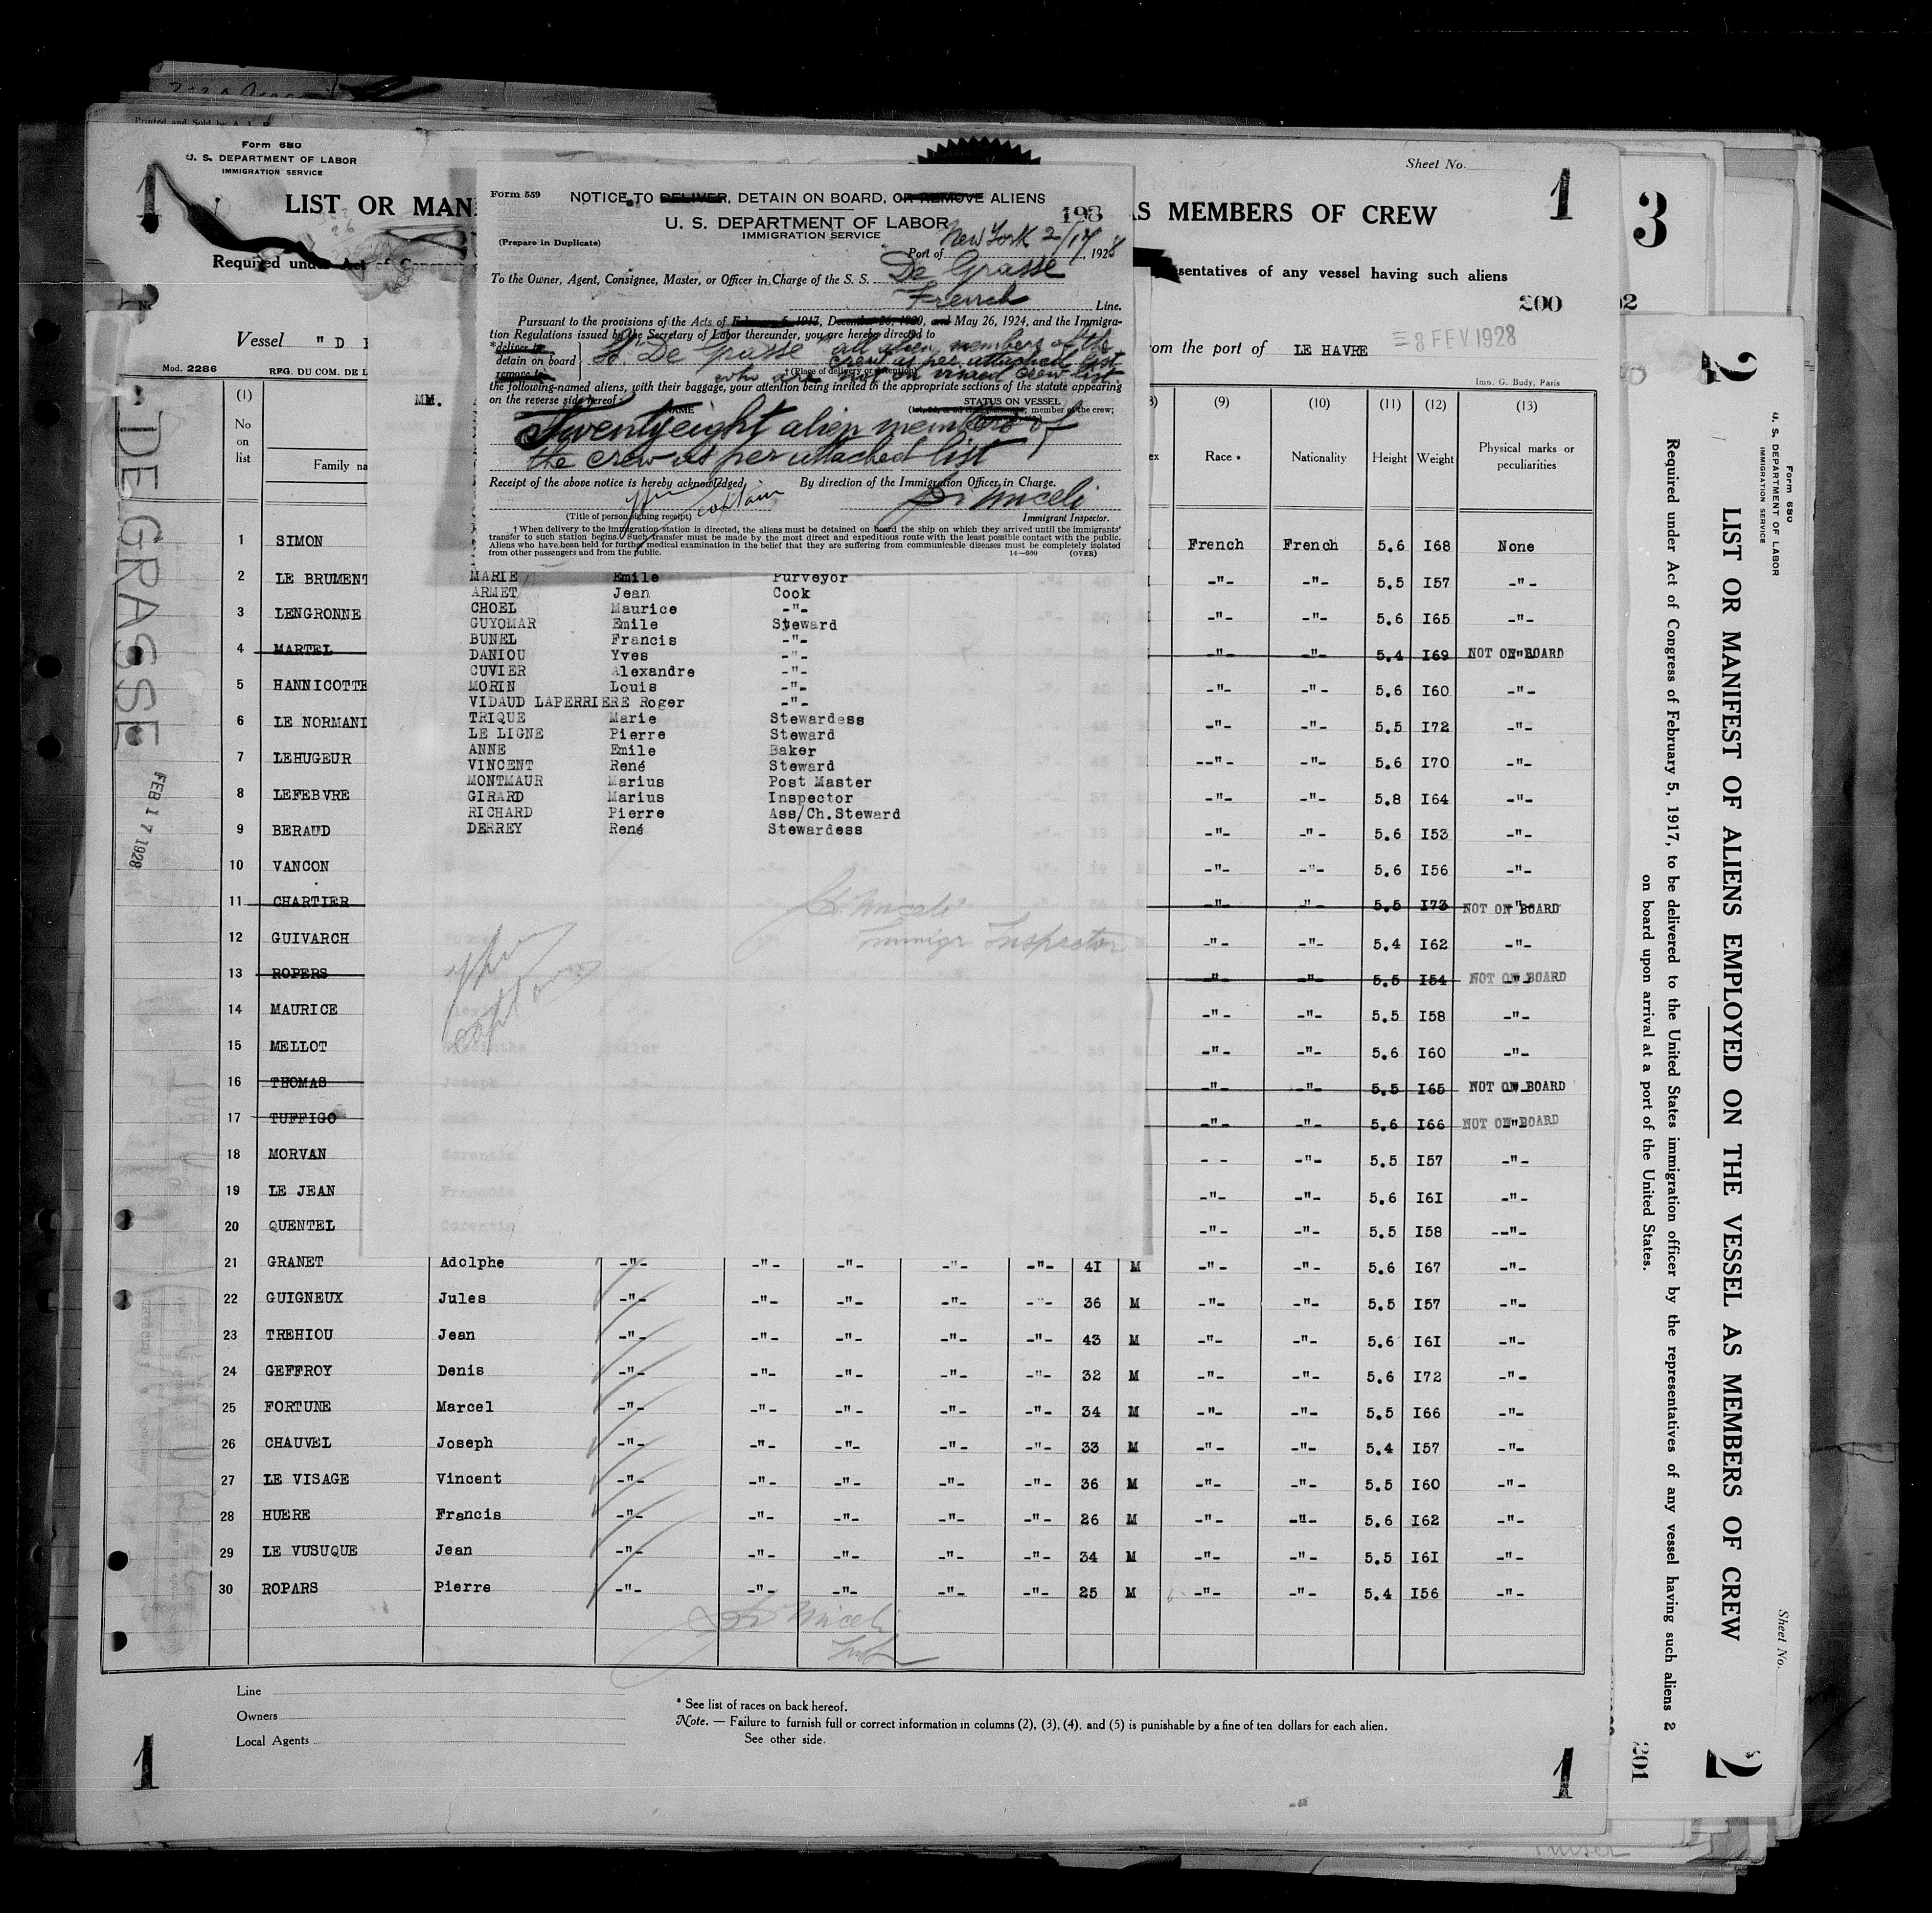 Form 680
U. S. DEPARTMENT OF LABOR
IMMIGRATION SERVICE
Sheet No.
1
1
LIST OR MAN
AS MEMBERS OF CREW
Required under Act of Congress
sentatives of any vessel having such aliens
200
Vessel "D
om the port of LE HAVRE
8 FEV 1928
Mod. 2286
REG. DU COM. DE L
Imp. G. Budy, Paris
Form 559
NOTICE TO DELIVER, DETAIN ON BOARD, OR REMOVE ALIENS
198
U. S. DEPARTMENT OF LABOR
IMMIGRATION SERVICE
(Prepare in Duplicate)
Port of New York 2/17, 1928
To the Owner, Agent, Consignee, Master, or Officer in Charge of the S. S. De Grasse
French Line.
Pursuant to the provisions of the Acts of February 5, 1917, December 26, 1920, and May 26, 1924, and the Immigra-
tion Regulations issued by the Secretary of Labor thereunder, you are hereby directed to
*deliver to
detain on board
remove to
SS. De Grasse all alien members of the
crew as per attached list
†(Place of delivery or detention)
who are not on visaed crew list
the following-named aliens, with their baggage, your attention being invited to the appropriate sections of the statute appearing
on the reverse side hereof:
NAME
STATUS ON VESSEL
(1st, 2d, or 3d class passenger, member of the crew;
Twentyeight alien members of
the crew as per attached list
Receipt of the above notice is hereby acknowledged
By direction of the Immigration Officer in Charge.
captain
Miceli
(Title of person signing receipt)
Immigrant Inspector.
† When delivery to the immigration station is directed, the aliens must be detained on board the ship on which they arrived until the immigrants'
transfer to such station begins. Such transfer must be made by the most direct and expeditious route with the least possible contact with the public.
Aliens who have been held for further medical examination in the belief that they are suffering from communicable diseases must be completely isolated
from other passengers and from the public.
14—660
(OVER)
MM.
MARIE Emile Purveyor
ARMET Jean Cook
CHOEL Maurice -"-
GUYOMAR Emile Steward
BUNEL Francis -"-
DANIOU Yves -"-
CUVIER Alexandre -"-
MORIN Louis -"-
VIDAUD LAPERRIERE Roger -"-
TRIQUE Marie Stewardess
LE LIGNE Pierre Steward
ANNE Emile Baker
VINCENT René Steward
MONTMAUR Marius Post Master
GIRARD Marius Inspector
RICHARD Pierre Ass/Ch.Steward
DERREY René Stewardess
Miceli
Immigr Inspector
captain
(1) (9) (10) (11) (12) (13)
No on list
Family na
Race *
Nationality
Height
Weight
Physical marks or peculiarities
1 SIMON French French 5.6 I68 None
2 LE BRUMENT -"- -"- 5.5 I57 -"-
3 LENGRONNE -"- -"- 5.6 I65 -"-
4 MARTEL -"- -"- 5.4 I69 NOT ON BOARD
5 HANNICOTTE -"- -"- 5.6 I60 -"-
6 LE NORMAND -"- -"- 5.5 I72 -"-
7 LEHUGEUR --"- -"- 5.6 I70 -"-
8 LEFEBVRE -"- -"- 5.8 I64 -"-
9 BERAUD -"- -"- 5.6 I53 -"-
10 VANCON -"- -"- 5.6 I56 -"-
11 CHARTIER -"- -"- 5.5 I73 NOT ON BOARD
12 GUIVARCH -"- -"- 5.4 I62 -"-
13 ROPERS -"- -"- 5.5 I54 NOT ON BOARD
14 MAURICE -"- -"- 5.5 I58 -"-
15 MELLOT -"- -"- 5.6 I60 -"-
16 THOMAS -"- -"- 5.5 I65 NOT ON BOARD
17 TUFFIGO -"- -"- 5.6 I66 NOT ON BOARD
18 MORVAN - - -"- 5.5 I57 -"-
19 LE JEAN -"- -"- 5.6 I6I -"-
20 QUENTEL -"- -"- 5.5 I58 --"-
21 GRANET Adolphe -"- -"- -"- -"- -"- 4I M -"- -"- 5.6 I67 -"-
22 GUIGNEUX Jules -"- -"- -"- -"- -"- 36 M -"- -"- 5.5 I57 -"-
23 TREHIOU Jean -"- -"- -"- -"- -"- 43 M -"- -"- 5.6 I6I -"-
24 GEFFROY Denis -"- -"- -"- -"- -"- 32 M -"- -"- 5.6 I72 -"-
25 FORTUNE Marcel -"- -"- -"- -"- -"- 34 M -"- -"- 5.5 I66 -"-
26 CHAUVEL Joseph -"- -"- -"- -"- -"- 33 M -"- -"- 5.4 I57 -"-
27 LE VISAGE Vincent -"- -"- -"- -"- -"- 36 M -"- -"- 5.5 I60 -"-
28 HUERE Francis -"- -"- -"- -"- -"- 26 M -"- -"- 5.6 I62 -"-
29 LE VUSUQUE Jean -"- -"- -"- -"- -"- 34 M -"- -"- 5.5 I6I -"-
30 ROPARS Pierre -"- -"- -"- -"- -"- 25 M -"- -"- 5.4 I56 -"-
Miceli
Line
Owners
Local Agents
* See list of races on back hereof.
Note. — Failure to furnish full or correct information in columns (2), (3), (4), and (5) is punishable by a fine of ten dollars for each alien.
See other side.
1
1
DE GRASSE
FEB 17 1928
3
02
2
Form 680
U. S. DEPARTMENT OF LABOR
IMMIGRATION SERVICE
Sheet No.
LIST OR MANIFEST OF ALIENS EMPLOYED ON THE VESSEL AS MEMBERS OF CREW
Required under Act of Congress of February 5, 1917, to be delivered to the United States immigration officer by the representatives of any vessel having such aliens
on board upon arrival at a port of the United States.
2
201
2